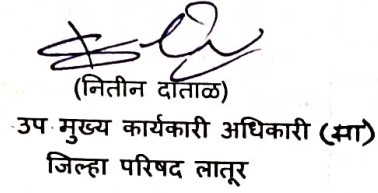 (नितीन दाताळ)
उप मुख्य कार्यकारी अधिकारी (सा)
जिल्हा परिषद लातूर